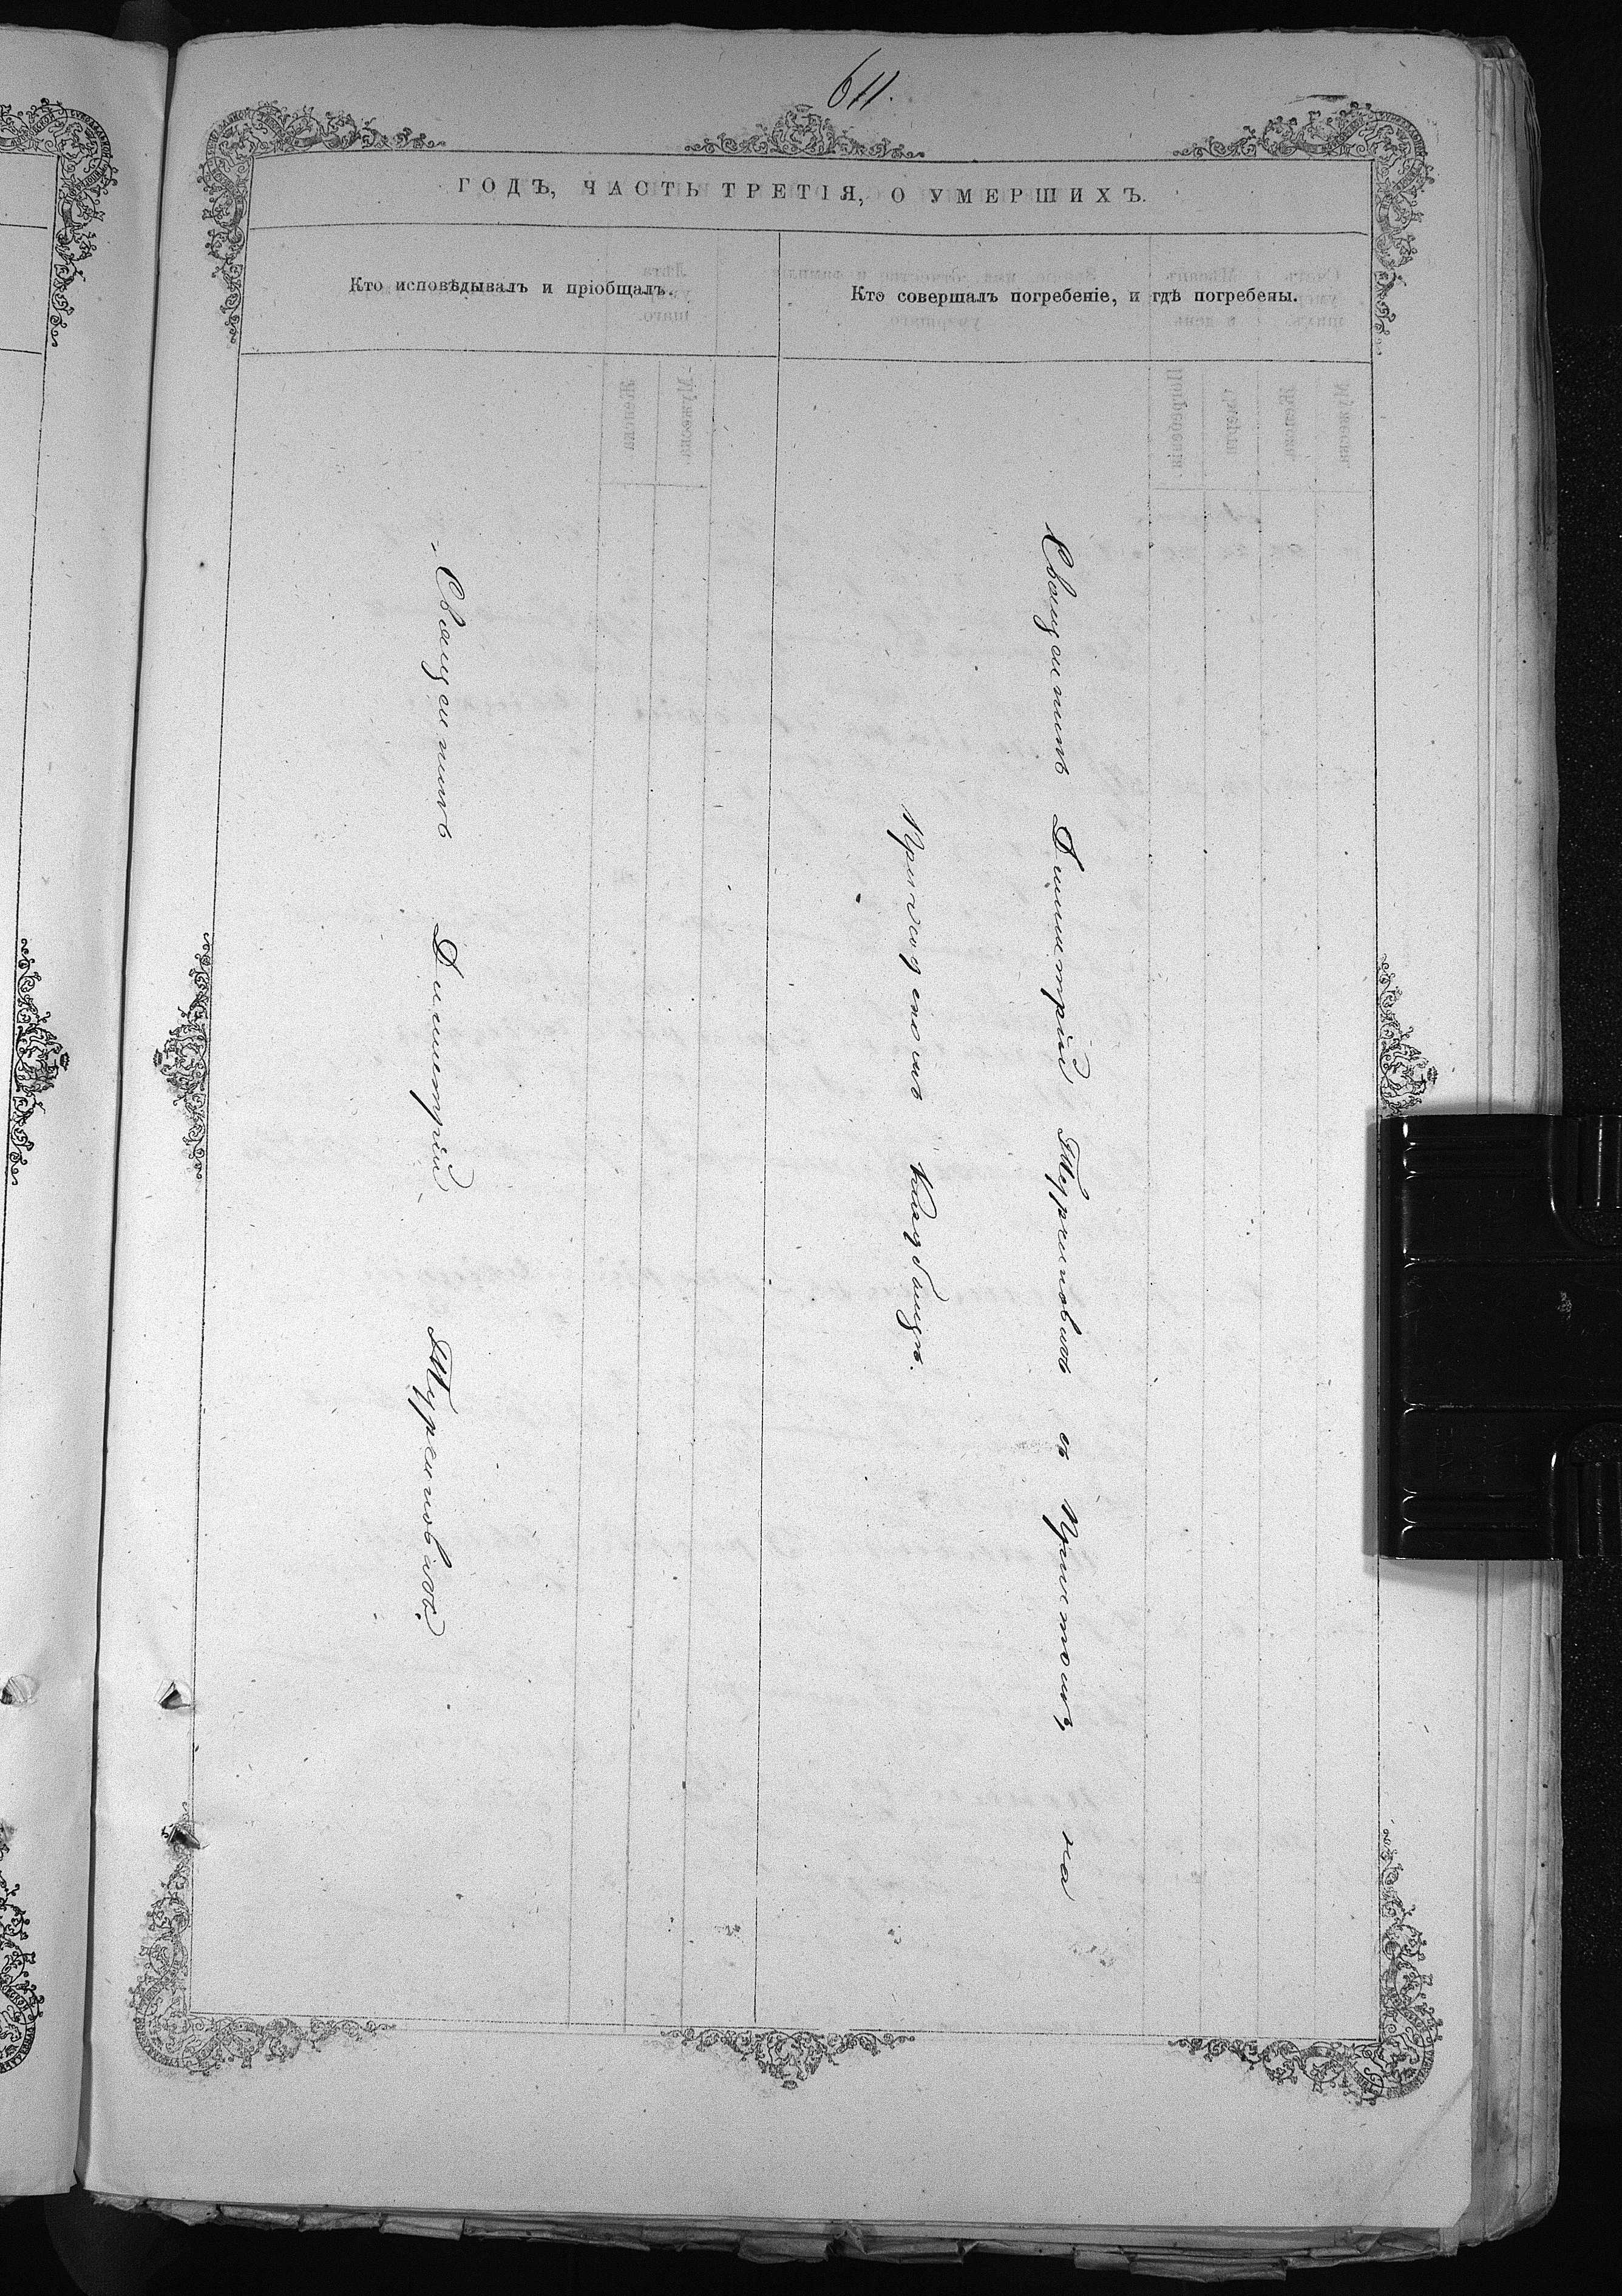 611.
ГОДЪ, ЧАСТЬ ТРЕТІЯ, О УМЕРШИХЪ.
Кто исповѣдывалъ и пріобщалъ.
Кто совершалъ погребеніе, и гдѣ погребены.
Священникъ Димитрій
Священникъ Димитрій съ Причтомъ, на
Приходскомъ Кладбищѣ.